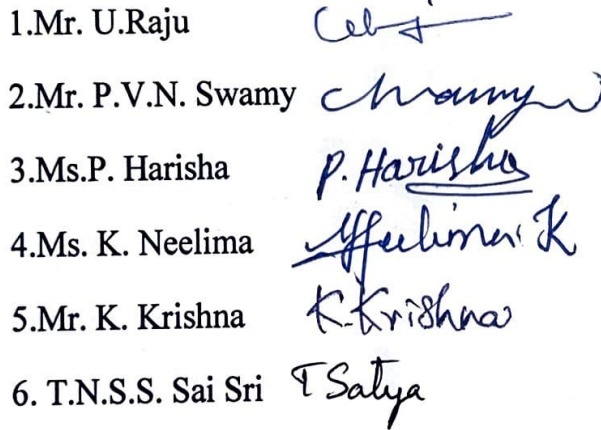 1.Mr. U.Raju
2.Mr. P.V.N. Swamy
3.Ms.P. Harisha P. Harisha
4.Ms. K. Neelima Neelima K
5.Mr. K. Krishna K.Krishna
6. T.N.S.S. Sai Sri T Satya